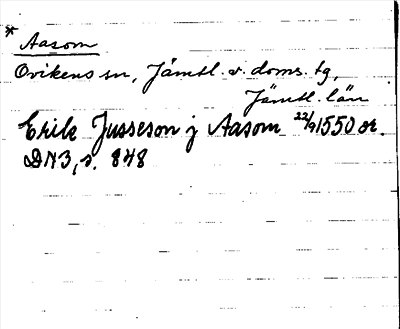 * Aasom
Ovikens sn, Jämtl. v. doms. tg,
Jämtl. län
Erik Jusseson j Aasom 22/9 1550 or.
DN3, s. 848